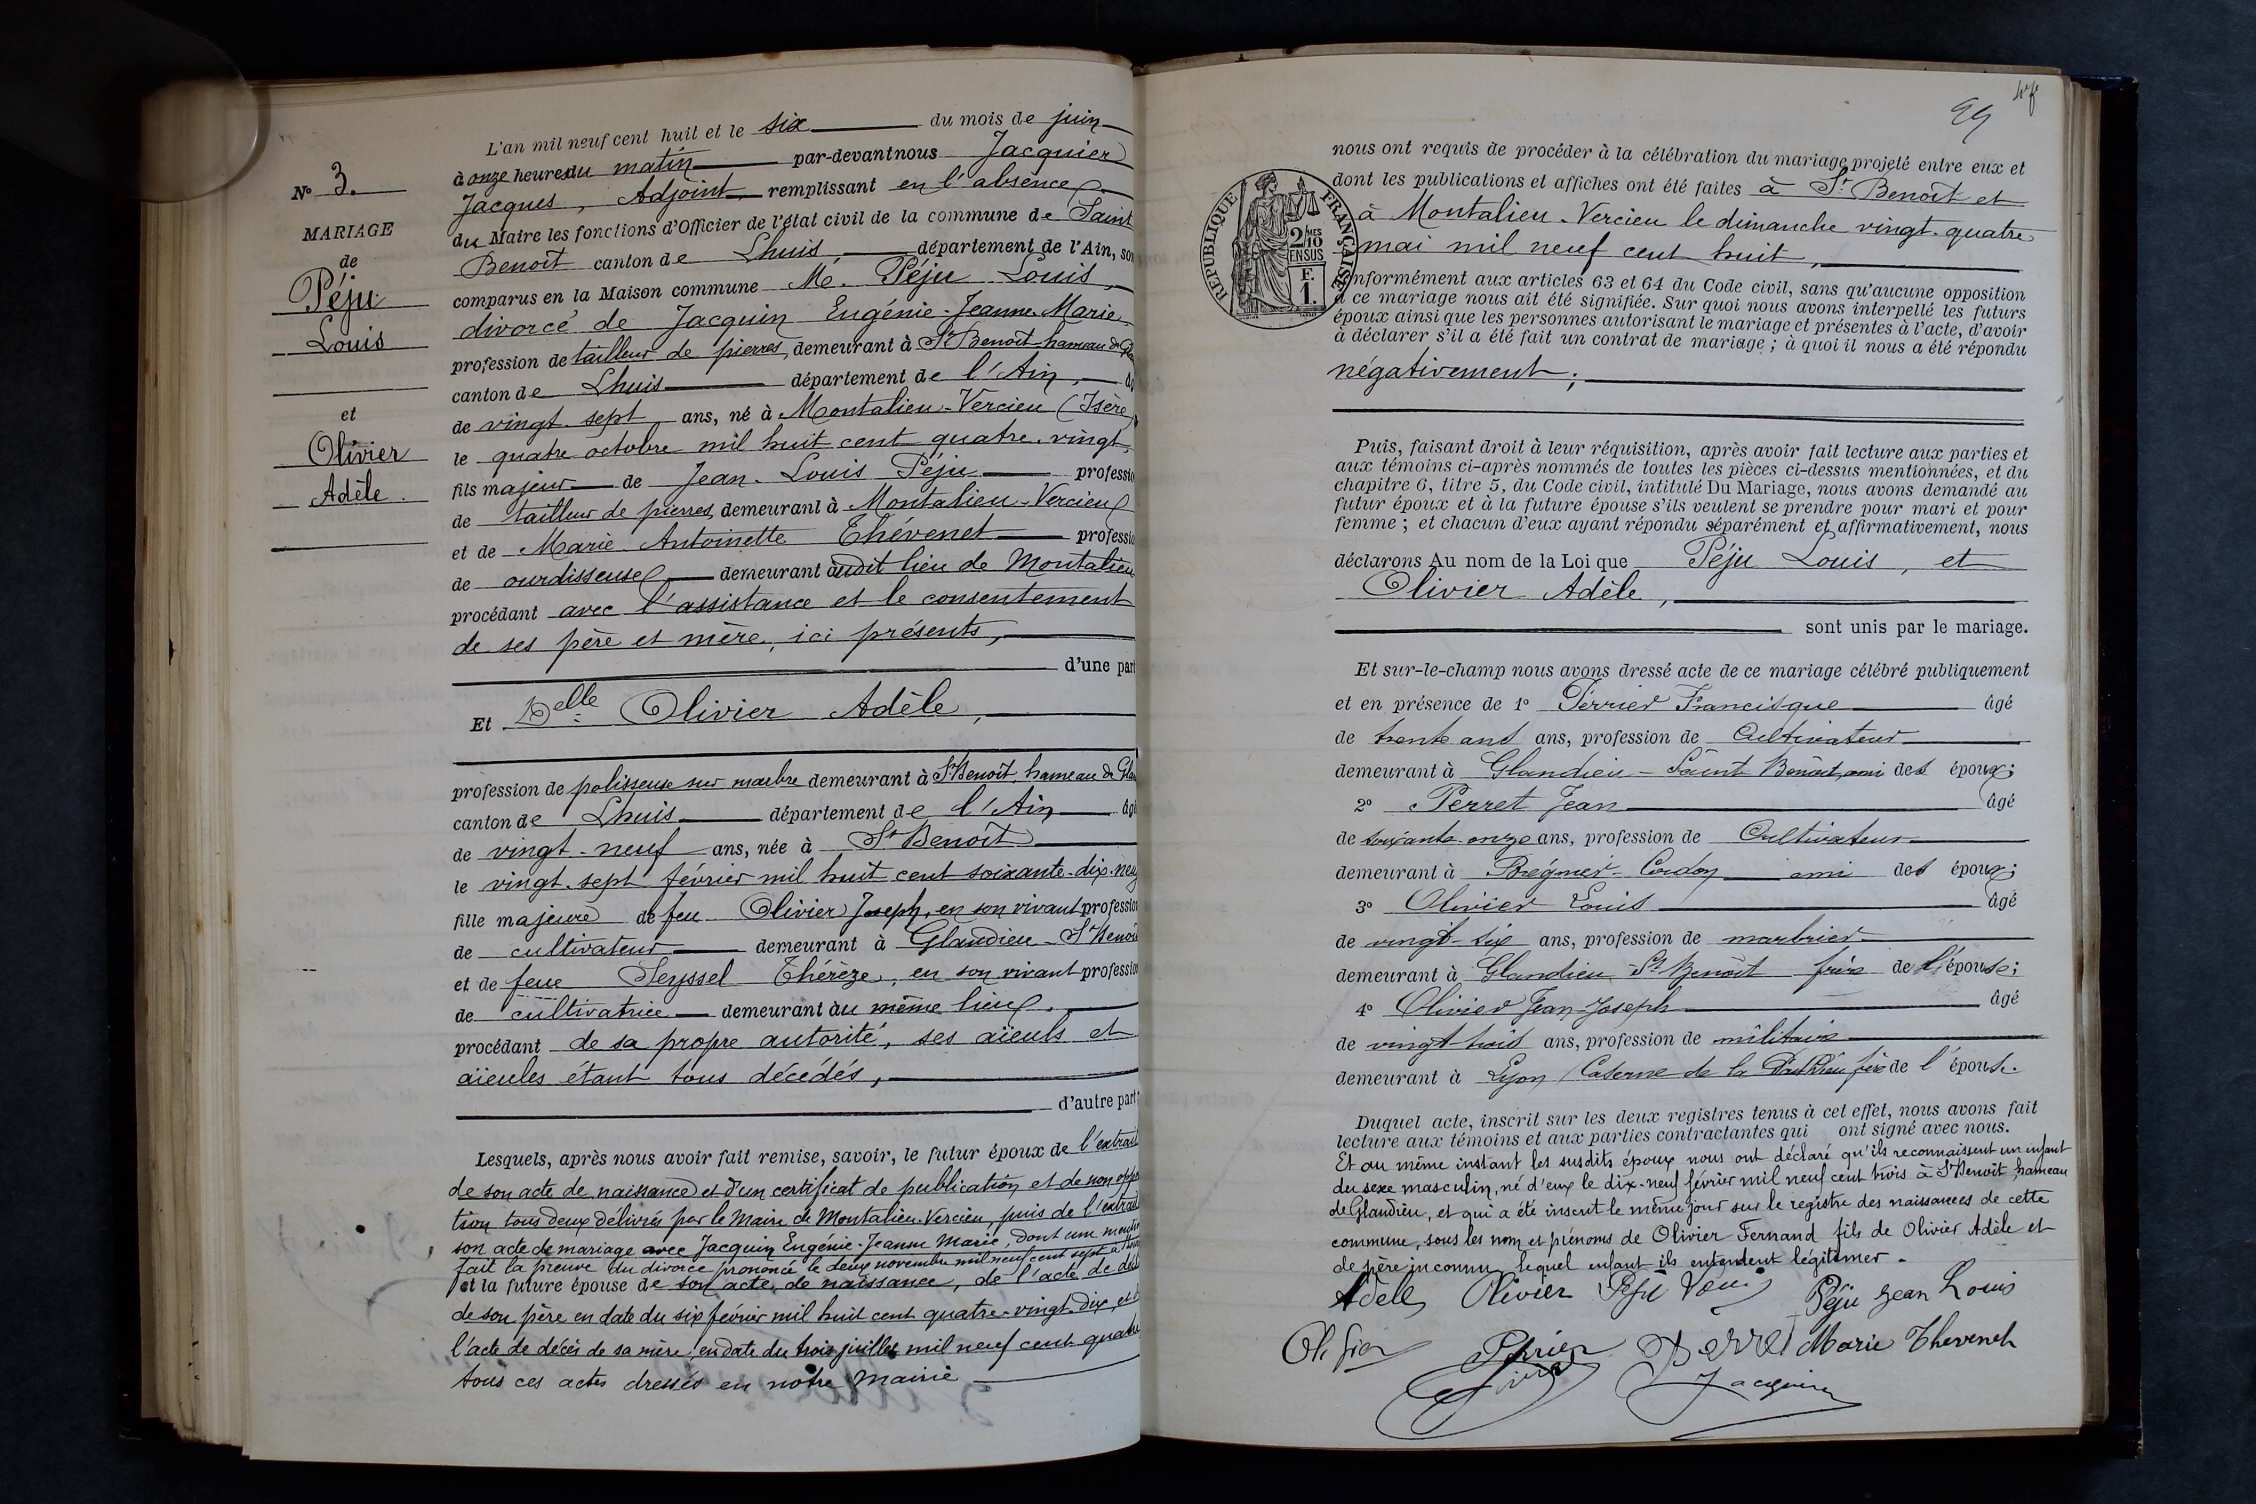 N° 3.
MARIAGE
de
Péju
Louis
et
Olivier
Adèle.
L'an mil neuf cent huit et le six du mois de juin
à onze heures du matin par-devant nous Jacquier
Jacques, Adjoint, remplissant en l'absence
du Maire les fonctions d'Officier de l'état civil de la commune de Saint
Benoît canton de Lhuis département de l'Ain, son
comparus en la Maison commune Mr. Péju Louis,
divorcé de Jacquin Eugénie-Jeanne-Marie
profession de tailleur de pierres, demeurant à St Benoît hameau de Gla
canton de Lhuis département de l'Ain,
de vingt-sept ans, né à Montalieu-Vercieu (Isère)
le quatre octobre mil huit cent quatre-vingt,
fils majeur de Jean-Louis Péju professio
de tailleur de pierres, demeurant à Montalieu-Vercieu
et de Marie Antoinette Thévenet professio
de ourdisseuse demeurant audit lieu de Montalieu
procédant avec l'assistance et le consentement
de ses père et mère, ici présents,
d'une part
Et Delle Olivier Adèle,
profession de polisseuse sur marbre demeurant à St Benoît, hameau de Gla
canton de Lhuis département de l'Ain âgé
de vingt-neuf ans, née à St Benoît
le vingt-sept février mil huit cent soixante-dix-neuf
fille majeure de feu Olivier Joseph, en son vivant profession
de cultivateur demeurant à Glandieu-St Benoît
et de feue Seyssel Thérèze, en son vivant profession
de cultivatrice demeurant au même lieu,
procédant de sa propre autorité, ses aïeuls et
aïeules étant tous décédés,
d'autre part
Lesquels, après nous avoir fait remise, savoir, le futur époux de l'extrait
de son acte de naissance et d'un certificat de publication et de non oppo
tion tous deux délivrés par le Maire de Montalieu-Vercieu, puis de l'extrait
son acte de mariage avec Jacquin Eugénie-Jeanne Marie, dont une mention
fait la preuve du divorce prononcé le deux novembre mil neuf cent sept à
et la future épouse de son acte de naissance, de l'acte de décè
de son père en date du six février mil huit cent quatre-vingt-dix, et
l'acte de décès de sa mère, en date du trois juillet mil neuf cent quatre
tous ces actes dressés en notre Mairie
nous ont requis de procéder à la célébration du mariage projeté entre eux et
dont les publications et affiches ont été faites à St. Benoît et
à Montalieu-Vercieu le dimanche vingt-quatre
mai mil neuf cent huit,
RÉPUBLIQUE FRANÇAISE
2/10 MES
EN SUS
F.
1.
conformément aux articles 63 et 64 du Code civil, sans qu'aucune opposition
à ce mariage nous ait été signifiée. Sur quoi nous avons interpellé les futurs
époux ainsi que les personnes autorisant le mariage et présentes à l'acte, d'avoir
à déclarer s'il a été fait un contrat de mariage ; à quoi il nous a été répondu
négativement ;
Puis, faisant droit à leur réquisition, après avoir fait lecture aux parties et
aux témoins ci-après nommés de toutes les pièces ci-dessus mentionnées, et du
chapitre 6, titre 5, du Code civil, intitulé Du Mariage, nous avons demandé au
futur époux et à la future épouse s'ils veulent se prendre pour mari et pour
femme ; et chacun d'eux ayant répondu séparément et affirmativement, nous
déclarons Au nom de la Loi que Péju Louis, et
Olivier Adèle,
sont unis par le mariage.
Et sur-le-champ nous avons dressé acte de ce mariage célébré publiquement
et en présence de 1° Perrier Francisque âgé
de trente ans ans, profession de Cultivateur
demeurant à Glandieu-Saint Benoît, ami des époux;
2° Perret Jean âgé
de soixante-onze ans, profession de Cultivateur
demeurant à Brégnier-Cordon ami des époux;
3° Olivier Louis âgé
de vingt-six ans, profession de marbrier
demeurant à Glandieu-St Benoît frère de l'épouse;
4° Olivier Jean-Joseph âgé
de vingt trois ans, profession de militaire
demeurant à Lyon Caserne de la Part-Dieu frère de l'épouse.
Duquel acte, inscrit sur les deux registres tenus à cet effet, nous avons fait
lecture aux témoins et aux parties contractantes qui ont signé avec nous.
Et au même instant les susdits époux nous ont déclaré qu'ils reconnaissent un enfant
du sexe masculin, né d'eux le dix-neuf février mil neuf cent trois à St Benoît, hameau
de Glandieu, et qui a été inscrit le même jour sur le registre des naissances de cette
commune, sous les nom et prénoms de Olivier Fernand fils de Olivier Adèle et
de père inconnu, lequel enfant ils entendent légitimer.
Adèle Olivier Péju Louis Péju Jean Louis
Olivier Perrier Perret Marie Thevenet
Olivier Jacquier